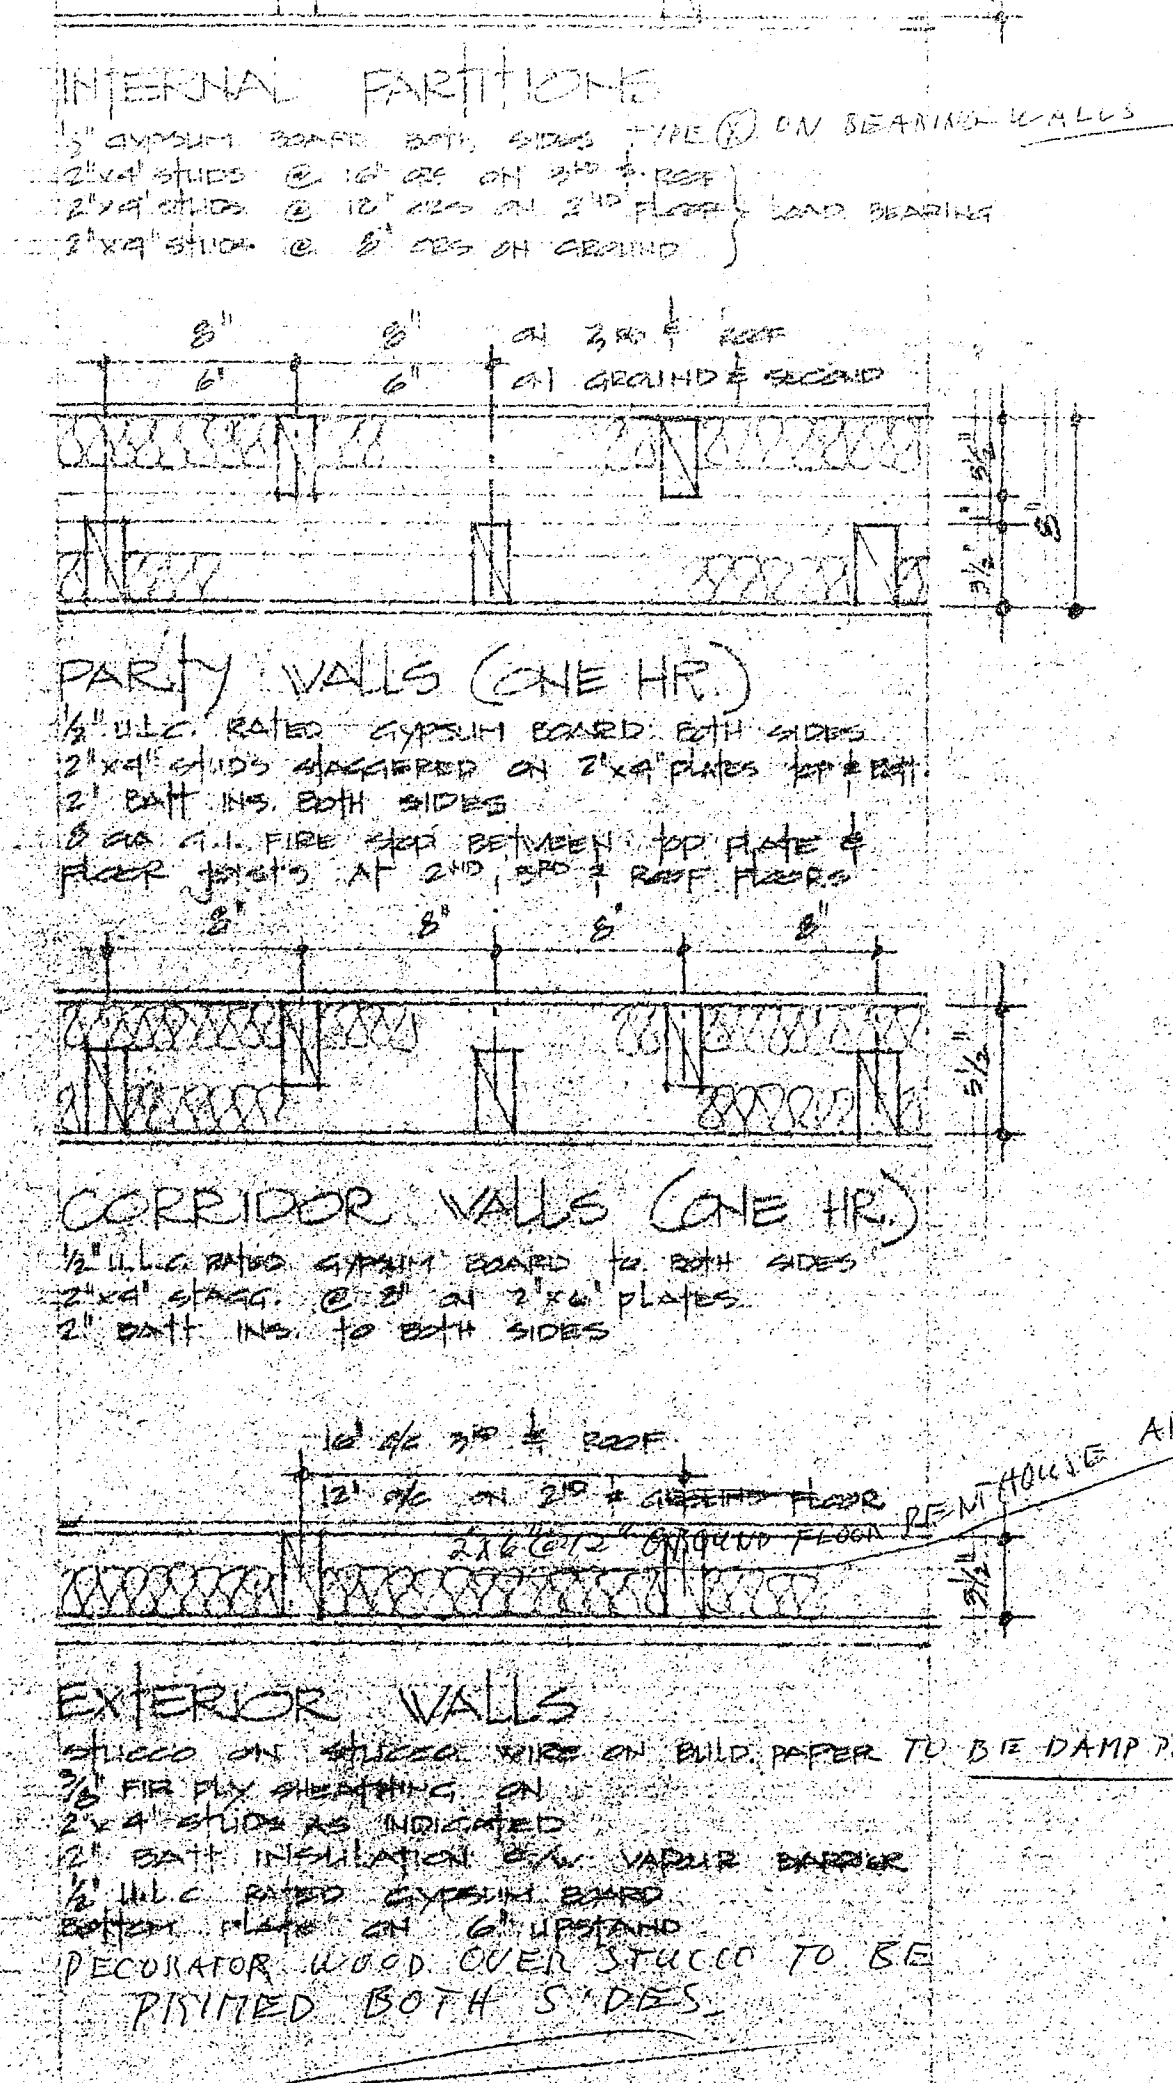 INTERNAL PARTITIONS
½" GYPSUM BOARD BOTH SIDES TYPE Ⓧ ON BEARING WALLS
2"x4" STUDS @ 16" CRS ON 3RD & ROOF
2"x4" STUDS @ 12" CRS ON 2ND FLOOR } LOAD BEARING
2"x4" STUDS @ 8" CRS ON GROUND
8" 8" ON 3RD & ROOF
6" 6" ON GROUND & SECOND
1"
3½"
PARTY WALLS (ONE HR.)
½" U.L.C. RATED GYPSUM BOARD BOTH SIDES
2"x4" STUDS STAGGERED ON 2"x4" PLATES TOP & BOTT.
2" BATT INS. BOTH SIDES
8 GA G.I. FIRE STOP BETWEEN TOP PLATE &
FLOOR JOISTS AT 2ND, 3RD & ROOF FLOORS
8" 8" 8" 8"
5½"
CORRIDOR WALLS (ONE HR.)
½" U.L.C. RATED GYPSUM BOARD TO BOTH SIDES
2"x4" STAGG. @ 8" ON 2"x6" PLATES
2" BATT INS. TO BOTH SIDES
16" O/C 3RD & ROOF
12" O/C ON 2ND & GROUND FLOOR
2x6" @ 12" GROUND FLOOR PENTHOUSE
3½"
EXTERIOR WALLS
STUCCO ON STUCCO WIRE ON BUILD. PAPER TO BE DAMP P
3/8" FIR PLY SHEATHING ON
2"x4" STUDS AS INDICATED
2" BATT INSULATION C/W VAPOUR BARRIER
½" U.L.C RATED GYPSUM BOARD
BOTTOM PLATE ON 6" UPSTAND
DECORATOR WOOD OVER STUCCO TO BE
PRIMED BOTH SIDES